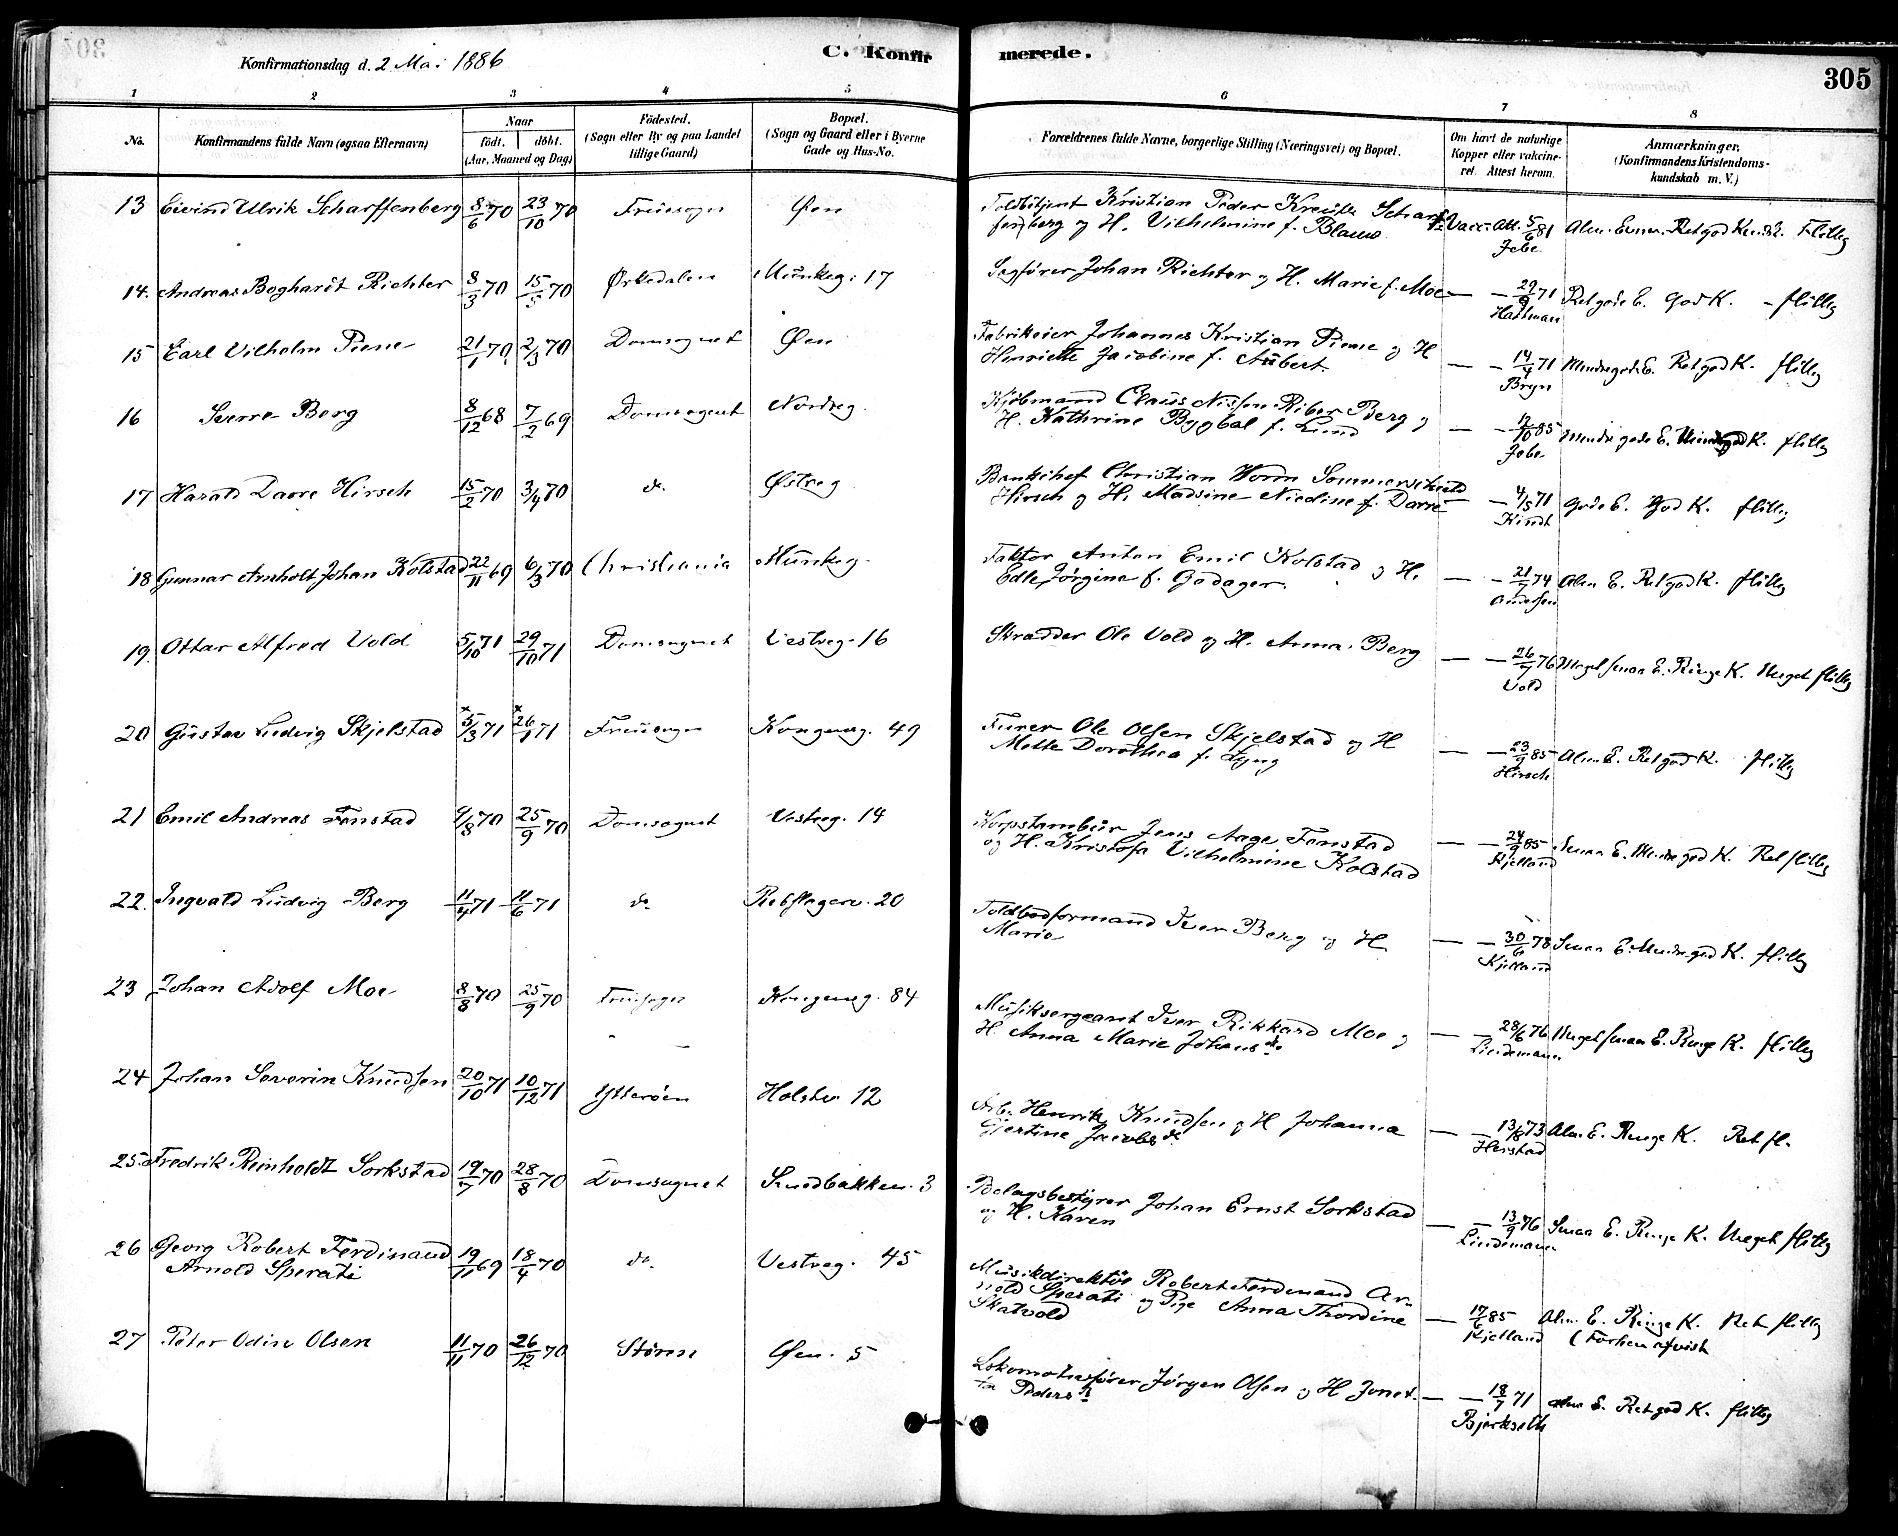 Konfirmationsdag d. 2 Mai 1886
C. Konfirmerede.
305
1 2 3 4 5 6 7 8
No.
Konfirmandens fulde Navn (ogsaa Efternavn)
Naar
födt. döbt.
(Aar, Maaned og Dag)
Födested.
(Sogn eller By og paa Landet tillige Gaard)
Bopæl.
(Sogn og Gaard eller i Byerne Gade og Hus-No.
Forældrenes fulde Navne, borgerlige Stilling (Næringsvei) og Bopæl.
Om havt de naturlige Kopper eller vaccineret. Attest herom.
Anmærkninger.
(Konfirmandens Kristendomskundskab m. V.)
13 Eivind Ulrik Scharffenberg 8/6 70 23/10 70 Fruesogn Øen Toldbetjent Kristian Peder Scharffenberg og H. Vilhelmine f. Vacc. Att. 5/6 81 Jebe Alm. Evner. Ret god Kundsk. Flittig
14. Andreas Boghardt Richter 8/3 70 15/5 70 Ørkedalen Munkeg. 17 Sagfører Johan Richter og H. Marie f. Moe — — 29/9 71 Hartman Ret gode E. God K. - flittig
15 Carl Vilhelm Piene 21/1 70 2/3 70 Domsognet Øen Fabrikeier Johannes Kristian Piene og H Henriette Jacobine f. Aubert. — — 14/4 71 Bryn Mindre gode E. Ret god K. flittig
16 Sverre Berg 8/12 68 7/2 69 Domsognet Nordreg. Kjøbmand Claus Nissen Riber Berg og H. Kathrine Bygbal f. Lund — — 12/10 85 Jebe Mindre gode E. Mindre god K. flittig
17 Harald Darre Hirsch 15/2 70 3/4 70 do. Østreg Bankchef Christian Worm Sommerschield Hirsch og H. Madsine Nicoline f. Darre — — 4/5 71 Kindt Gode E. God K. flittig
18 Gunnar Arnholt Johan Kolstad 22/11 69 6/3 70 Christiania Munkeg. Faktor Anton Emil Kolstad og H. Edle Jørgine f. Godager. — — 21/7 74 Andersen Alm E. Ret god K. flittig
19. Ottar Alfred Vold 5/10 71 29/10 71 Domsognet Vestreg. 16 Skrædder Ole Vold og H. Anna Berg — — 26/7 76 Vold Meget smaa E. Ringe K. Meget flittig
20 Gustav Ludvig Skjelstad 5/3 71 26/1 71 Fruesogn Kongensg. 49 Furer Ole Olsen Skjelstad og H Mette Dorothea f. Lyng — — 23/9 85 Hirsch Alm E. Ret god K. flittig
21 Emil Andreas Fonstad 9/8 70 25/9 70 Domsognet Vestreg. 14 Korpstambur Jens Aage Fonstad og H. Kristofa Vilhelmine Kolstad — — 24/9 85 Kjelland Smaa E. Mindre god K. Ret flittig
22. Ingvald Ludvig Berg 11/4 71 11/6 71 do. Rebslagerv. 20 Toldbodformand Iver Berg og H Marie — — 30/6 78 Kjelland Smaa E. Mindre god K. flittig
23 Johan Adolf Moe 8/8 70 25/9 70 Fruesogn Kongensg. 84 Musiksergeant Iver Rikkard Moe og H. Anna Marie Johansdr. — — 28/6 76 Lindemann Meget smaa E. Ringe K. flittig
24 Johan Severin Knudsen 20/10 71 10/12 71 Ytterøen Holstv. 12 Arb. Henrik Knudsen og H Johanna Gjertine Jacobsdr. — — 13/8 73 Herstad Alm. E. Ringe K. Ret fl.
25. Fredrik Reinholdt Sorkstad 19/7 70 28/8 70 Domsognet Smedbakken 3 Bolagsbestyrer Johan Ernst Sorkstad og H. Karen — — 13/9 76 Lindemann Smaa E. Ringe K. Meget flittig
26 Georg Robert Ferdinand Arnold Sperati 19/11 69 18/4 70 do. Vestreg. 45 Musikdirektør Robert Ferdinand Arnold Sperati og Pige Anna Thordine Skatvold — 17/6 85 Kjelland Alm. E. Ringe K. Ret flittig (Forhen afvist
27 Peter Odin Olsen 11/11 70 26/12 70 Støren Øen. 5 Lokomotivfører Jørgen Olsen og H Jonetta Pedersdr. — — 18/7 71 Bjerkseth Alm E. Ret god K. flittig